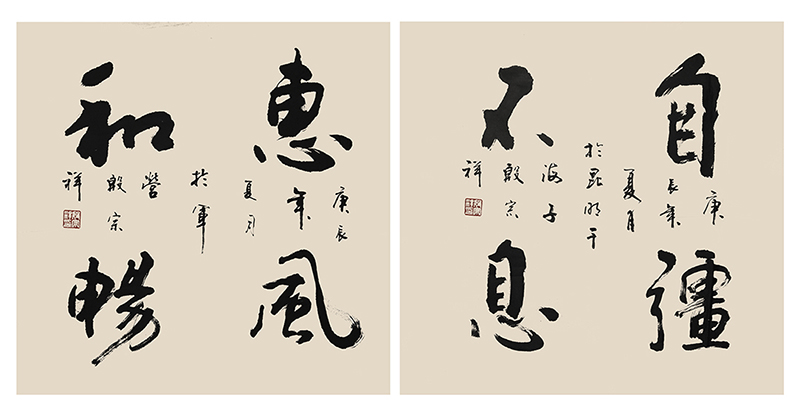 惠風
和暢
庚辰
年
夏月
於軍
營
殷宗
祥
自彊
不息
庚
辰年
夏月
於昆明干
海子
殷宗
祥